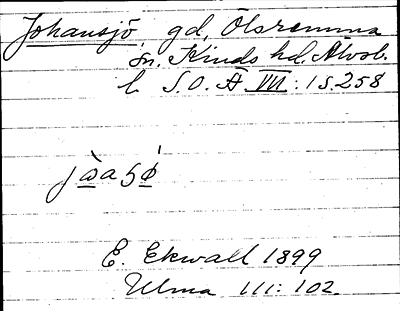 Johansjö, gd, Ölsremma
sn. Kinds hd. Älvsb.
l. S.O.Ä VII:1 S.258
E. Ekwall 1899
Ulma 111:102